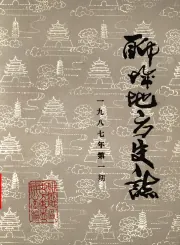 聊城地方史志
一九八七年第一期